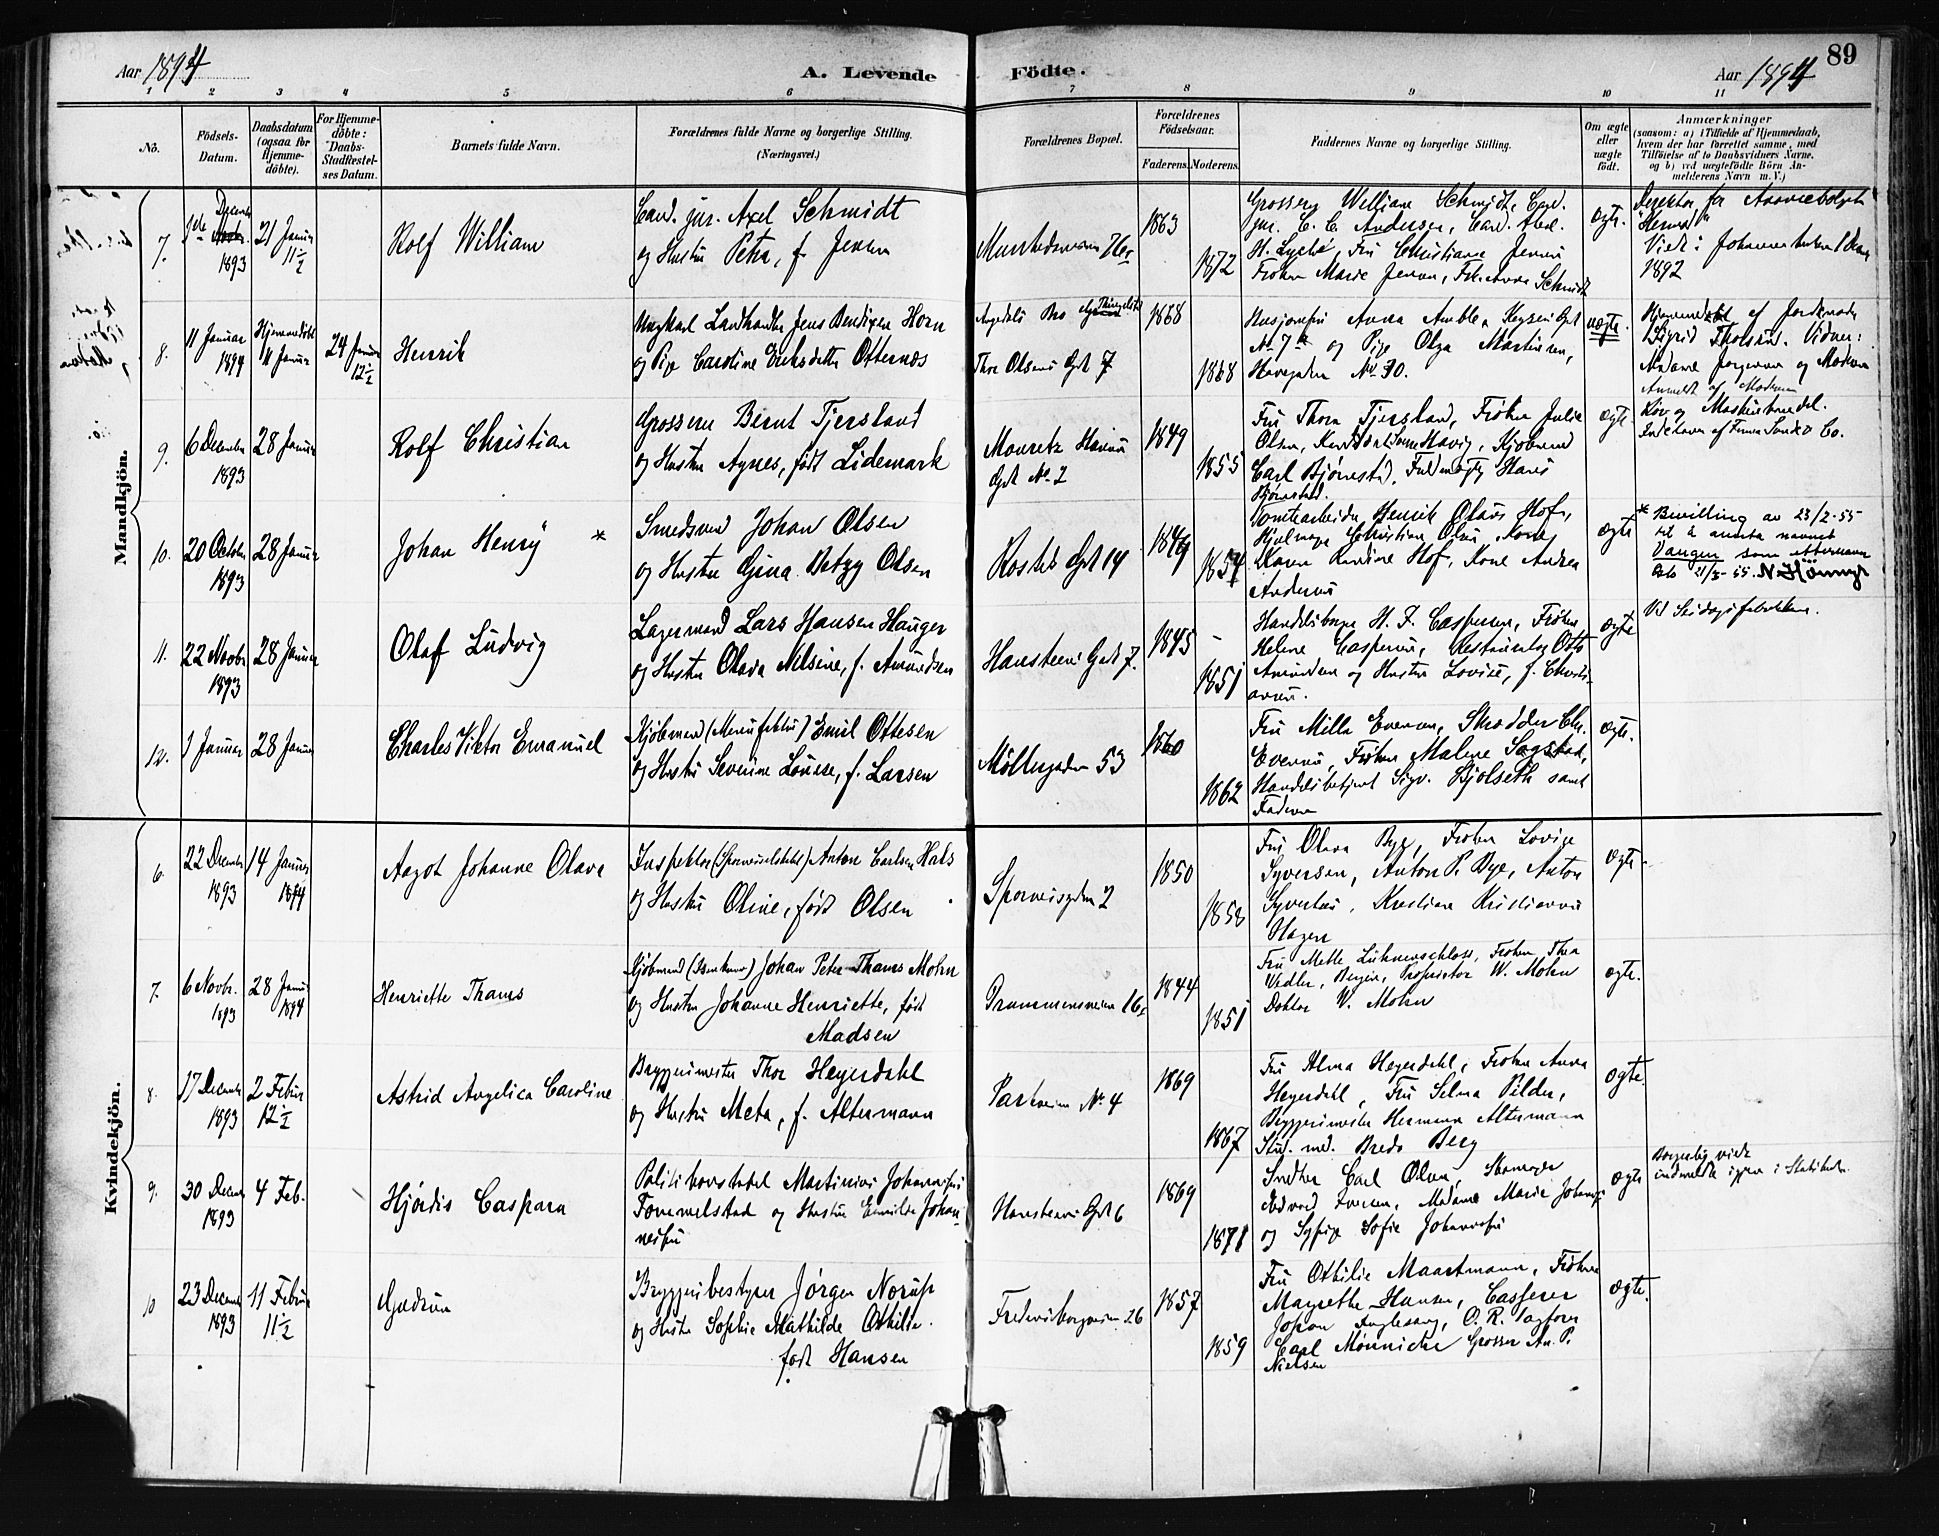 89
Aar 1894
A. Levende
Födte.
Aar 1894
1 2 3 4 5 6 7 8 9 10 11
No.
Födsels-
Datum.
Daabsdatum
(ogsaa for
Hjemme-
döbte).
For Hjemme-
döbte:
Daabs-
Stadfæstel-
ses Datum.
Barnets fulde Navn.
Forældrenes fulde Navne og borgerlige Stilling.
(Næringsvei.)
Forældrenes Bopæl.
Forældrenes
Födselsaar.
Faderens. Moderens.
Faddernes Navne og borgerlige Stilling.
Om ægte
eller
uægte
födt.
Anmærkninger
(saasom: a) i Tilfælde af Hjemmedaab,
hvem der har forrettet samme, med
Tilföielse af to Daabsvidners Navne,
og b) ved uægtefödte Börn An-
melderens Navn m. V.)
Mandkjön.
7.
1ste Decembr
1893
21 Januar
11½
Rolf William
Cand. jur. Axel Schmidt
og Hustru Petra, f. Jensen
1863
1872
Grosserer William Schmidt, Cand.
jur. C. C. Andersen, Cand. 
Fru Christiane Jensen
Frøken Marie Jensen, Frk. Anna Schmidt
ægte.
Direktør for 
1892
8.
11 Januar
1894
Hjemmedøbt
11 Januar
24 Januar
12½
Henrik
Ungkarl Landhandler Jens Bendixen Horn
og Pige Caroline Eriksdatter Otternes
Thor Olsens Gd. 7
1868
1868
Anna Amble, Keysers Gd.
No 7 og Pige Olga Martinsen,
Havegaden No 30.
uægte.
Hjemmedøbt af Jordemoder
Sigrid Vidner:
Madame Jørgensen og Moderen
Anmeldt af Moderen
9.
6 December
1893
28 Januar
Rolf Christian
Grosserer Bernt Tjersland
og Hustru Agnes, født Lidemark
Mouritz Hansens
Gd. No 2
1849
1855
Fru Thora Tjersland, Frøken Julie
Olsen, Kjøbmand
Carl Bjørnestad, Fuldmægtig Hans
Bjørnestad.
ægte.
Kor og Maskinhandel.
10.
20 October
1893
28 Januar
Johan Henry *
Smedsvend Johan Olsen
og Hustru Gina Betzy Olsen
Rosteds Gd. 14
1849
1854
Tomtearbeider Henrik Olaus Hof,
Christian Olsen, Kone
Karen Hof, Kone Andrea
Andersen
ægte
* Bevilling av 23/2-55
til å anta navnet
Vangen som etternavn
Oslo 21/3-55.
11.
22 Novbr.
1893
28 Januar
Olaf Ludvig
Lagermand Lars Hansen Hauger
og Hustru Olava Nilsine, f. Amundsen
Hansteens Gade 7.
1845
1851
H. F. Caspersen, Frøken
Helene Caspersen, Restauratør Otto
Amundsen og Hustru Lovise, f. Christi-
ansen.
ægte
Ved Seildugsfabrikken.
12.
1 Januar
28 Januar
Charles Viktor Emanuel
Kjøbmand (Manufaktur) Emil Ottesen
og Hustru Severine Louise, f. Larsen
Møllergaden 53
1860
1862
Fru Milla Evensen, Skrædder Chr.
Evensen, Frøken Malene Sogstad,
Handelsbetjent Sigv. Kjølseth samt
Faderen
ægte.
Kvindekjön.
6.
22 Decembr
1893
14 Januar
1894
Aagot Johanne Olava
Inspektør (Sporveisselskabet) Anton Carlsen Hals
og Hustru Oline, født Olsen
Sporveisgaden 2
1850
1858
Fru Olava Bye, Frøken Lovise
Syversen, Anton P. Bye, Anton
Syversen, Kristiane Kristiansen
Hagen
ægte.
7.
6 Novbr.
1893
28 Januar
1894
Henriette Thams
Kjøbmand (Isenkram) Johan Peter Thams Mohn
og Hustru Johanne Henriette, født
Madsen
Drammensveien 16
1844
1851
Fru Mette Lührmenschloss, Frøken Thea
Wedler, Bergen, Proprietær W. Mohn
Doktor V. Mohn
ægte.
8.
17 December
1893
2 Februar
12½
Astrid Angelica Caroline
Bryggerimester Thor Heyerdahl
og Hustru Meta, f. Altermann
Parkveien No 4
1869
1867
Fru Alma Heyerdahl, Frøken Anna
Heyerdahl, Fru Selma Pilder,
Bryggerimester Hermann Altermann
Stud. med. Bredo Berg
ægte.
9.
30 Decembr
1893
4 Feb.
Hjørdis Caspara
Politikonstabel Martinius Johannessen
Tommelstad og Hustru Emilde Johan-
nessen
Hansteens Gd. 6
1869
1871
Snedker Carl Olsen, Skomager
Edvard Iversen, Madame Marie Johansen
og Sypige Sofie Johannessen
ægte
Borgerlig viede
indmeldt igjen i Statskirken
10
23 December
1893
11 Februar
11½
Gudrun
Bryggeribestyrer Jørgen Norup
og Hustru Sophie Mathilde Othilie
født Hansen
Frederiksborgveien 26
1857
1859
Fru Othilie Maartmann, Frøken
Magrethe Hansen, Casserer
Johan Englesang, O. R. Vagtborn
Carl Mønniche Grosserer An. P.
Nielsen
ægte.